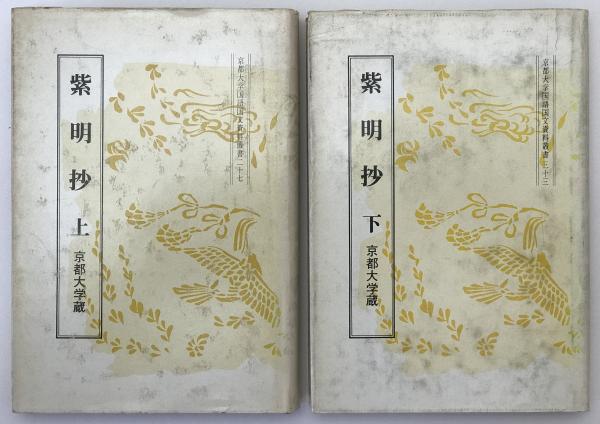 京都大学国語国文資料叢書二十七
紫明抄 上 京都大学蔵
京都大学国語国文資料叢書三十三
紫明抄 下 京都大学蔵